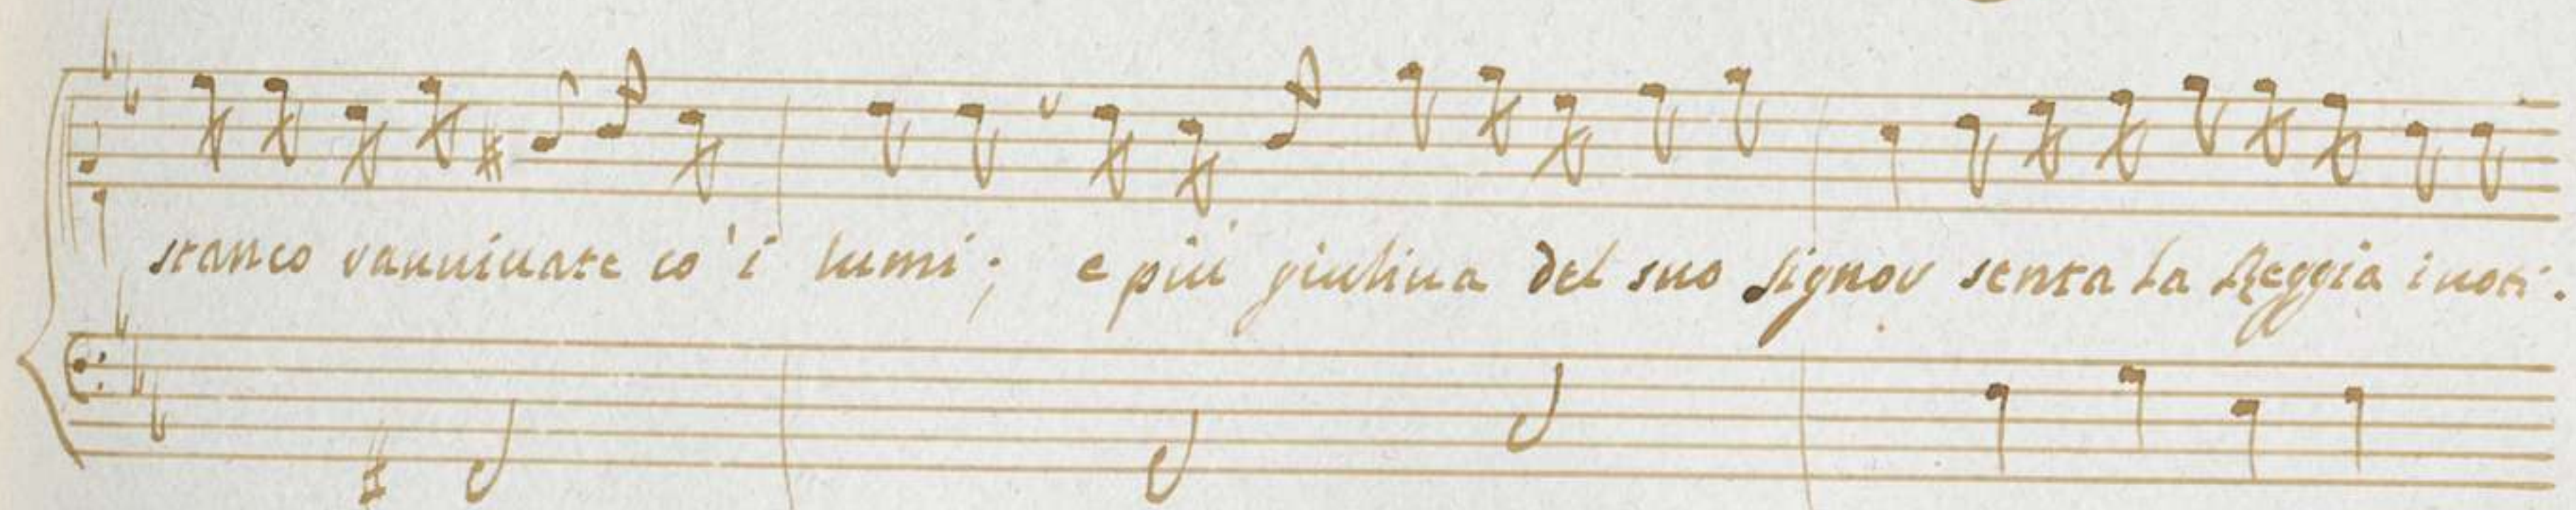 stanco rauuiuate co'i lumi; e più giuliua del suo signor senta la Reggia i uoti.